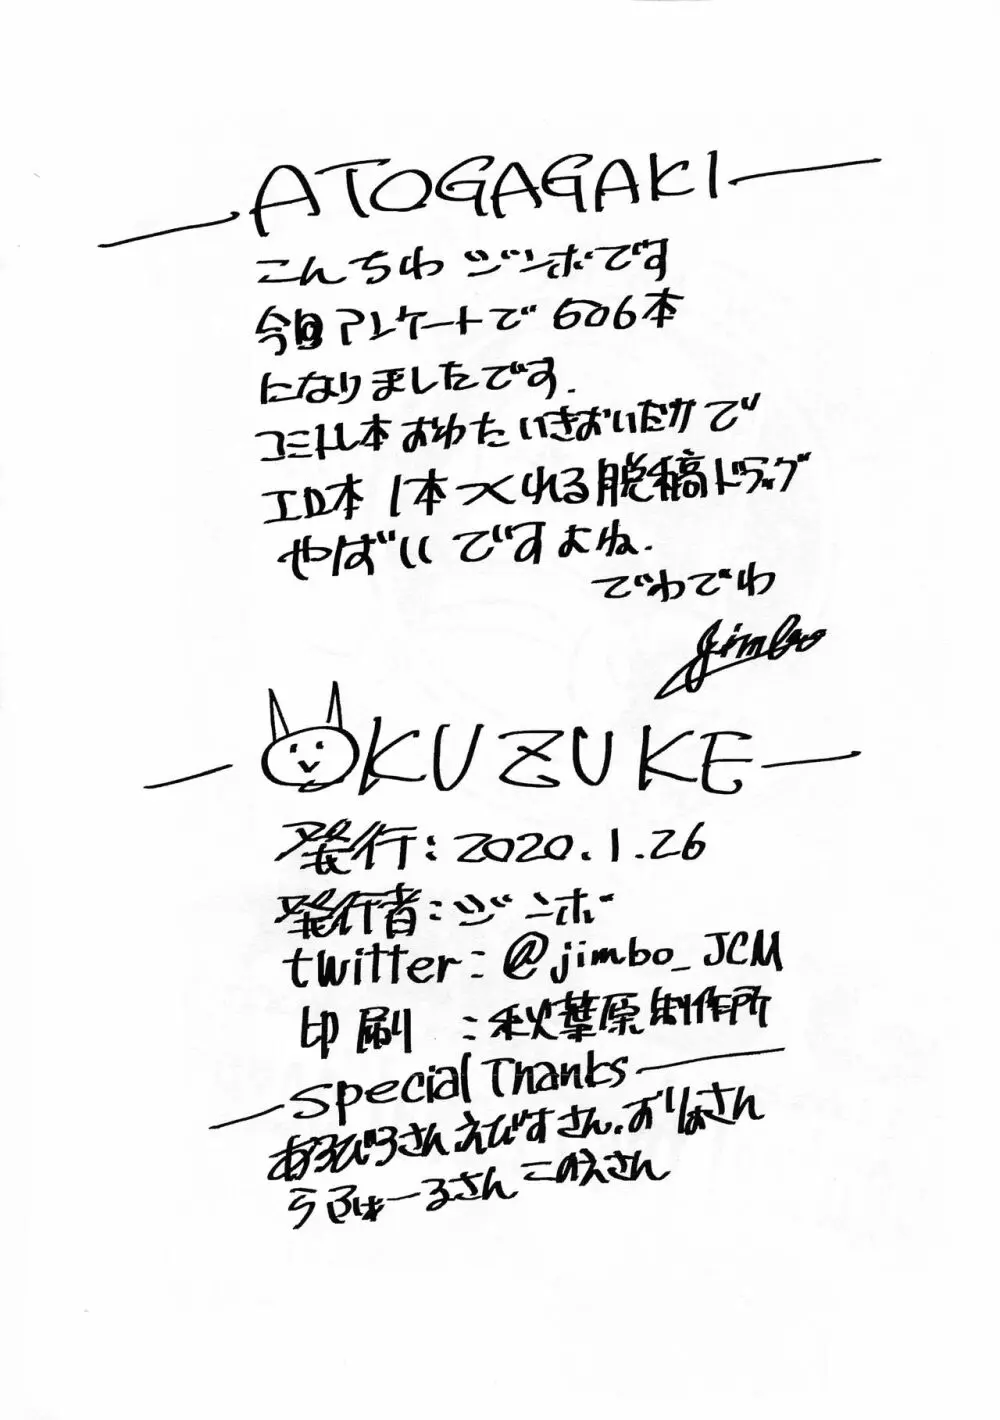 ATOGAGAKI
こんちわ ジンボです
今回アンケートで606本
になりましたです.
コミトレ本おわたいきおいだけで
エロ本1本つくれる脱稿ドラッグ
やばいですよね.
でわでわ
jimbo
OKUZUKE
発行:2020.1.26
発行者:ジンボ
twitter:@jimbo_JCM
印刷:秋葉原制作所
Special Thanks
あろびろさん えびすさん.おりはさん
うるはーるさん このえさん